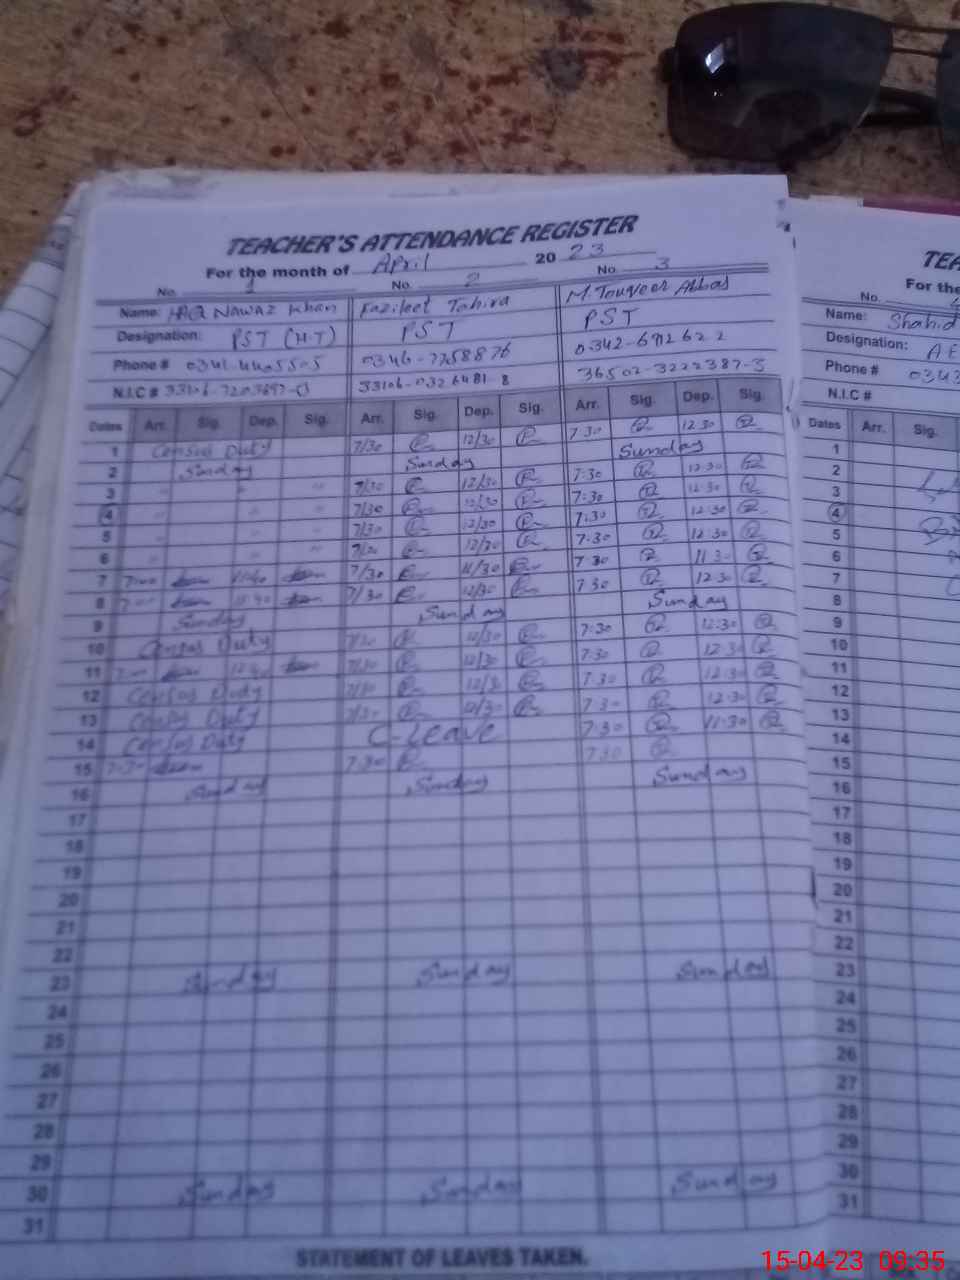 TEACHER'S ATTENDANCE REGISTER
For the month of April 2023
No. 1 No. 2 No. 3
Name: HAQ Nawaz Khan Fazileet Tahira M. Touqeer Abbas
Designation: PST (H.T) PST PST
Phone # 0341-4405505 0346-7758876 0342-6912622
N.I.C # 33106-0326481-8 36502-3222387-3
Dates Arr. Sig. Dep. Sig. Arr. Sig. Dep. Sig. Arr. Sig. Dep. Sig.
1 Census Duty 7/30 12/30 7 30 12 30
2 Sunday Sunday Sunday
3 " " " 7/30 12/30 7:30 12:30
4 " " " 7/30 12/30 7:30 12:30
5 " " " 7/30 12/30 7:30 12:30
6 " " " 7/30 12/30 7:30 12:30
7 7:00 7/30 11/30 7 30 11 30
8 7/30 12/30 7 30 12 30
9 Sunday Sunday Sunday
10 Census Duty 7/30 12/30 7:30 12:30
11 7/30 12/30 7:30 12:30
12 Census Duty 7/30 12/30 7:30 12:30
13 Census Duty 7/30 12/30 7:30 12:30
14 Census Duty C-Leave 7:30 11:30
15 7:30 7:30 7:30
16 Sunday Sunday Sunday
17
18
19
20
21
22
23 Sunday Sunday Sunday
24
25
26
27
28
29
30 Sunday Sunday Sunday
31
STATEMENT OF LEAVES TAKEN.
TEA
For the
No.
Name: Shahid
Designation: AE
Phone # 0343
N.I.C #
Dates Arr. Sig.
1
2
3
4
5
6
7
8
9
10
11
12
13
14
15
16
17
18
19
20
21
22
23
24
25
26
27
28
29
30
31
15-04-23 09:35